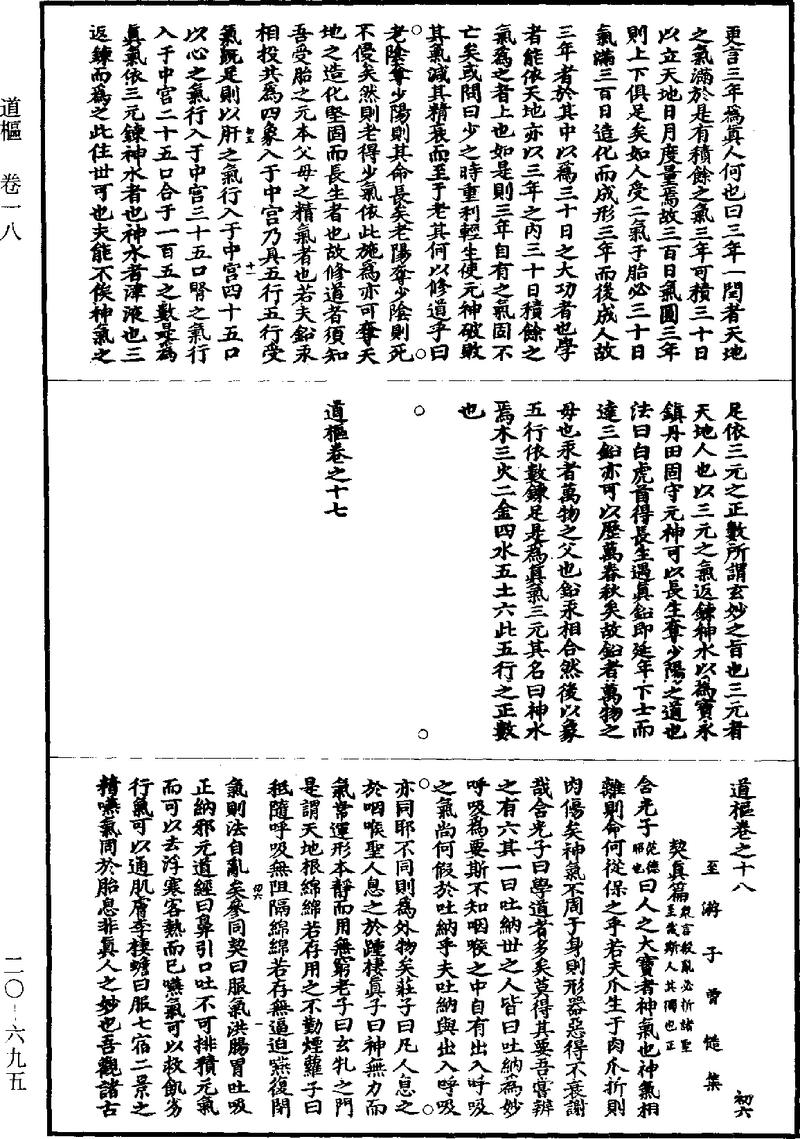 道樞　卷一八
二〇－六九五
更言三年為真人何也曰三年一閏者天地
之氣滿於是有積餘之氣三年可積三十日
以立天地日月度量焉故三百日氣圓三年
則上下俱足矣如人受二氣于胎必三十日
氣滿三百日造化而成形三年而後成人故
三年者於其中以為三十日之大功者也學
者能依天地亦以三年之內三十日積餘之
氣為之者上也如是則三年自有之氣固不
亡矣或問曰少之時重利輕生使元神破敗
其氣減其精衰而至于老其何以修道乎曰
老陰奪少陽則其命長矣老陽奪少陰則死
不優矣然則老得少氣依此施為亦可奪天
地之造化堅固而長生者也故修道者須知
吾受胎之元本父母之精氣者也若夫鉛汞
相投共為四象入于中宮乃具五行五行受
氣既足則以肝之氣行入于中宮四十五口
以心之氣行入于中宮三十五口腎之氣行
入于中宮二十五口合于一百五之數是為
真氣依三元鍊神水者也神水者津液也三
返鍊而為之此住世可也夫能不俟神氣之
足依三元之正數所謂玄妙之旨也三元者
天地人也以三元之氣返鍊神水以為寶永
鎮丹田固守元神可以長生奪少陽之道也
法曰白虎首得長生遇真鉛即延年下士而
達三鉛亦可以歷萬春秋矣故鉛者萬物之
母也汞者萬物之父也鉛汞相合然後以象
五行依數鍊足是為真氣三元其名曰神水
焉木三火二金四水五土六此五行之正數
也
道樞卷之十七
道樞卷之十八　初六
至游子曾慥集
契真篇 衆言殽亂必折諸聖至哉斯人其獨也正
含光子范德昭也曰人之大寶者神氣也神氣相
離則命何從保之乎若夫爪生于肉爪折則
肉傷矣神氣不周于身則形器惡得不衰謝
哉含光子曰學道者多矣莫得其要吾嘗辨
之有六其一曰吐納世之人皆曰吐納為妙
呼吸為要斯不知咽喉之中自有出入呼吸
之氣尚何假於吐納乎夫吐納與出入呼吸
亦同耶不同則為外物矣莊子曰凡人息之
於咽喉聖人息之於踵棲真子曰神無力而
氣常運形本靜而用無窮老子曰玄牝之門
是謂天地根綿綿若存用之不勤煙蘿子曰
秪隨呼吸無阻隔綿綿若存無逼迫嚥復閉
氣則法自亂矣參同契曰服氣洪腸胃吐吸
正納邪元道經曰鼻引口吐不可排積元氣
而可以去浮寒客熱而已嚥氣可以救飢劣
行氣可以通肌膚李棲蟾曰服七宿二景之
精嚥氣同於胎息非真人之妙也吾觀諸古